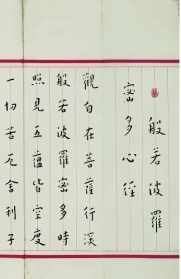 般若波羅
蜜多心經
觀自在菩薩行深
般若波羅蜜多時
照見五蘊皆空度
一切苦厄舍利子